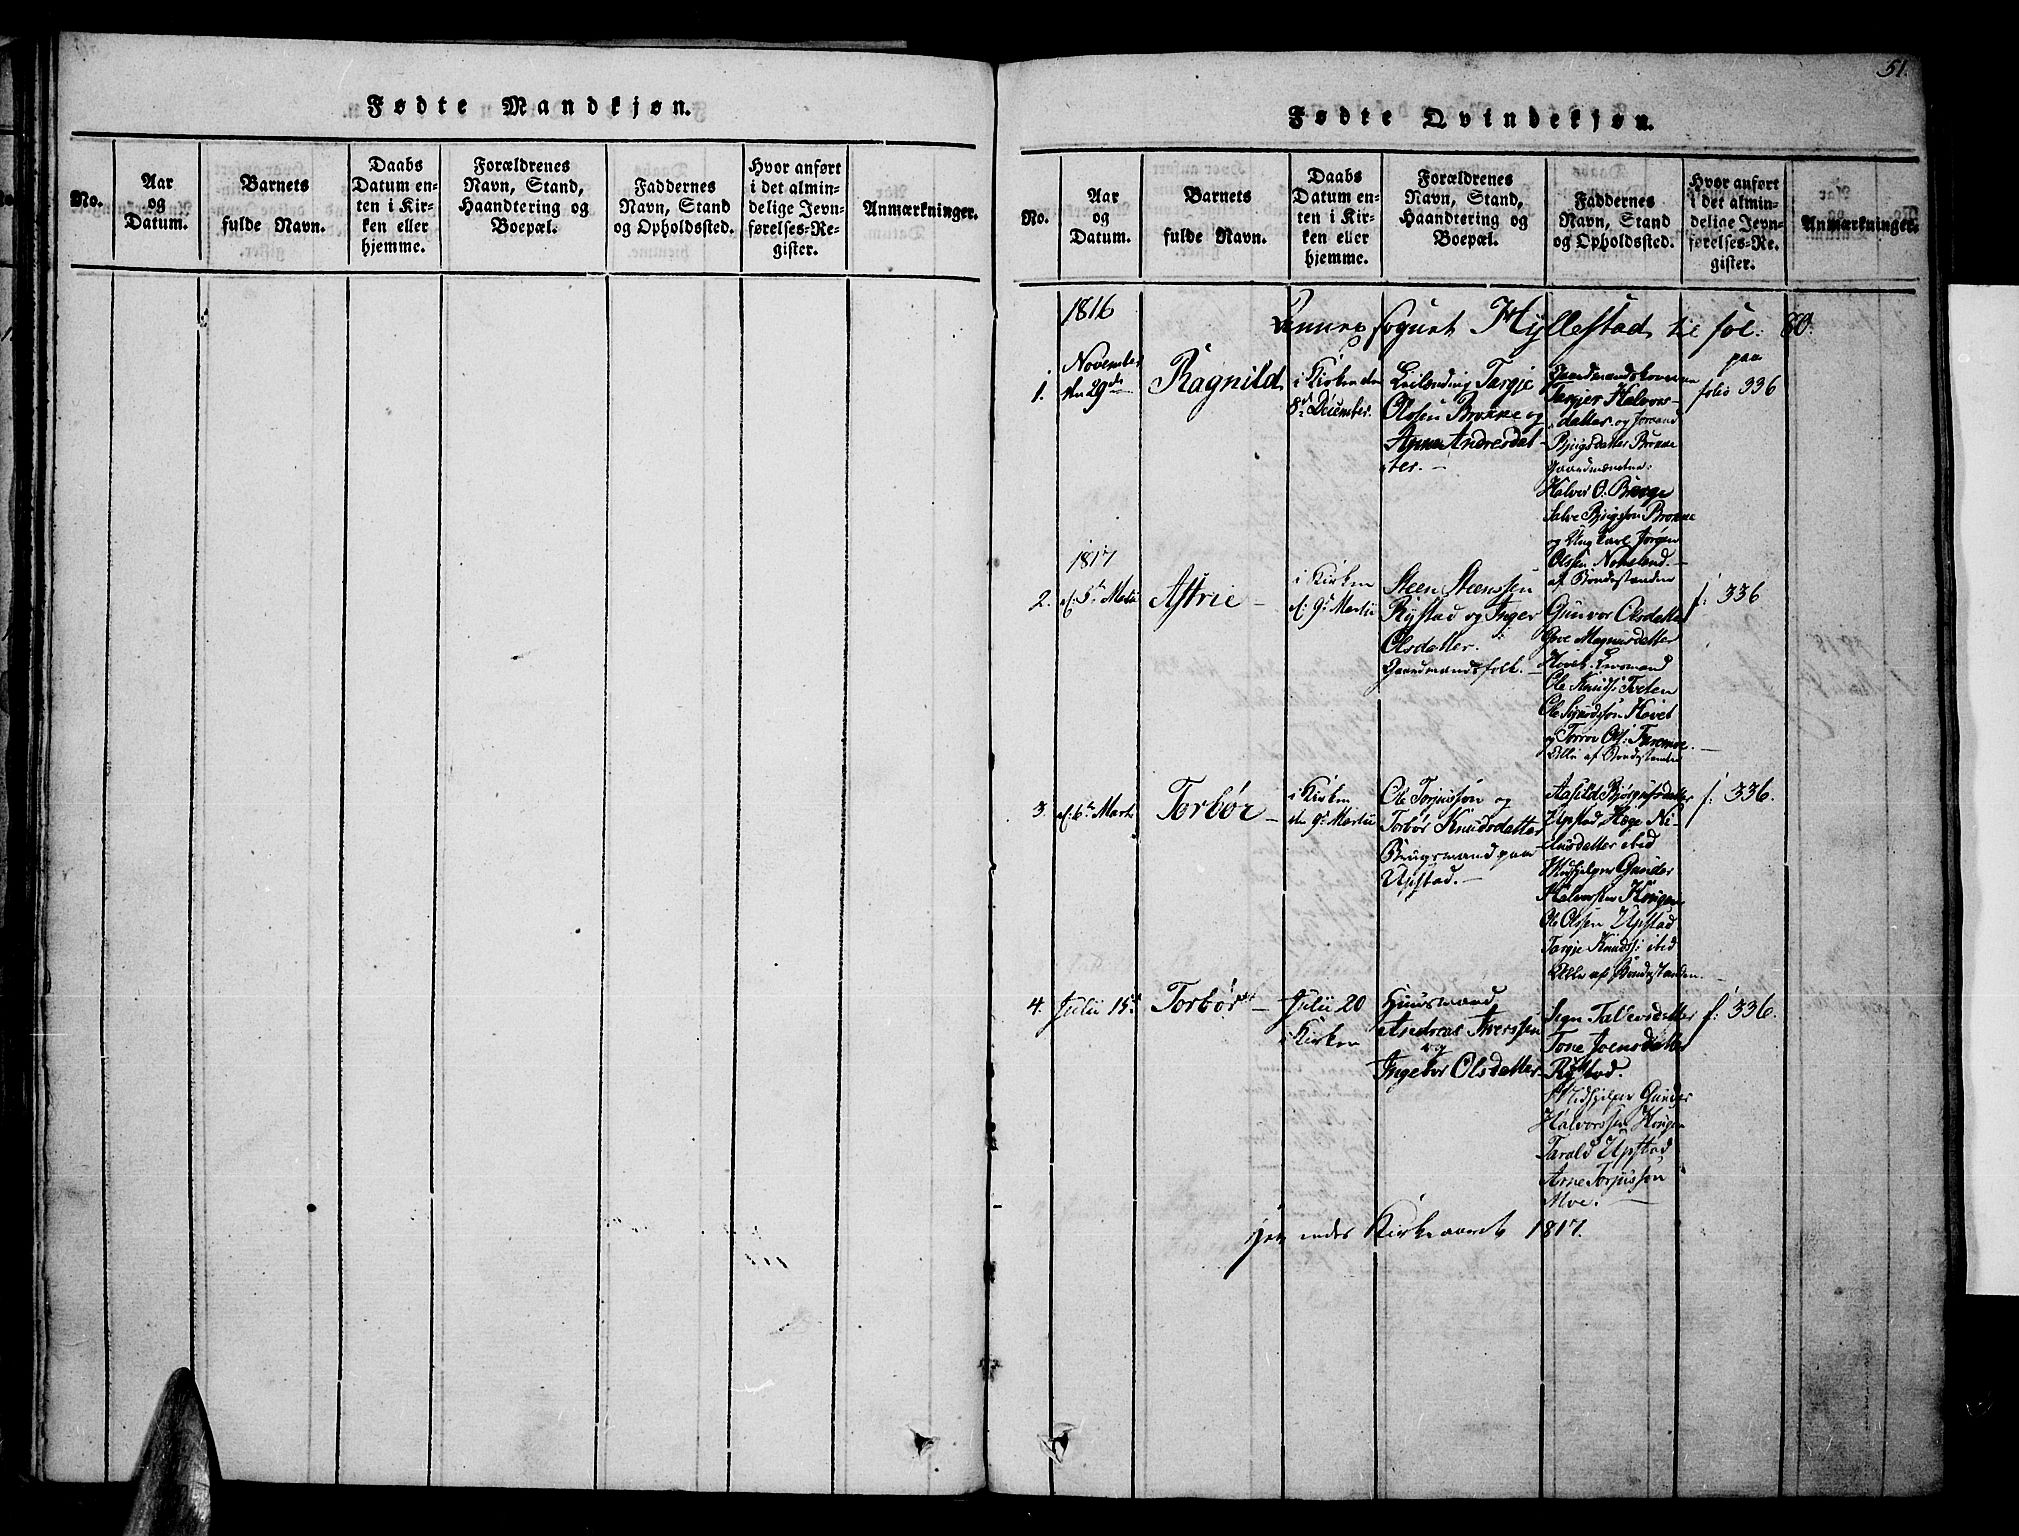 Fødte Mandkjøn.
No.
Aar
og
Datum.
Barnets
fulde Navn.
Daabs
Datum en-
ten i Kir-
ken eller
hjemme.
Forældrenes
Navn, Stand,
Haandtering og
Boepæl.
Faddernes
Navn, Stand
og Opholdssted.
Hvor anført
i det almin-
delige Jevn-
førelses-Re-
gister.
Anmærkninger.
51.
Fødte Qvindekjøn.
No.
Aar
og
Datum.
Barnets
fulde Navn.
Daabs
Datum en-
ten i Kir-
ken eller
hjemme.
Forældrenes
Navn, Stand,
Haandtering og
Boepæl.
Faddernes
Navn, Stand
og Opholdssted.
Hvor anført
i det almin-
delige Jevn-
førelses-Re-
gister.
Anmærkninger.
1816
sognet Hyllestad til fol: 80.
1.
November
den 29de
Ragnild
i Kirken den
8de December.
Leilending Targje
Olssen Brokke og
Anne Andresdat-
ter.
Gaardmandskonerne
Targier Halvors-
datter og Joraand
Bjugsdatter Brokke
Gaardmændene:
Halvor O. Berge
Salve Bjugsson Brokke
og Ungkarl Jørgen
Olssen Nomeland.
af Bondestanden
paa
folio 336
1817
2.
d: 5te Martii
Astrie
i Kirken
d: 9de Martii
Steen Steenssen
Rystad og Inger
Olsdatter.
Gaardmandsfolk.
Gunvor Olsdatter
Gyve Magnusdatter
Hovet. Lensmand
Ole Knuds: Tveten
Ole Hovet
og Torroe Ols:
Alle af Bondestanden
f: 336
3.
d: 6te Marti
Torbør
i Kirken
den 9de Martii
Ole Torjussøn og
Torbør Knudsdatter
Brugsmand paa
Upstad.
Aasild Bjørgufsdatter
Upstad, Hæge Ni-
lusdatter ibid
Medhjelper Gunder
Halvorssen Homgen
Ole Olssen Upstad
Targje Knudss: ibid
Alle af Bondestanden.
f: 336.
4.
Julii 15de
Torbør
Julii 20
i Kirken
Huusmand
Andreas Averssen
og
Ingebor Olsdatter
Sign Tallevsdatter
Tone Joensdatter
Rystad.
Medhjelper Gunder
Halvorssen Homgen
Tarald Upstad
Arne Torjussen
Moe.
f: 336.
ender Kirkeaaret 1817.